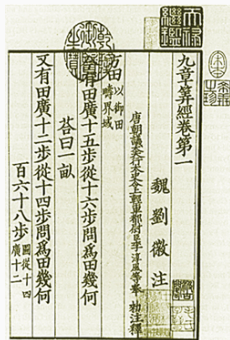 九章筭經卷第一
魏劉徽注
唐朝議大夫行太史令上輕車都尉臣李淳風等奉勑注釋
方田以御田疇界域
今有田廣十五步從十六步問為田幾何
荅曰一畝
又有田廣十二步從十四步問為田幾何
百六十八步圖從十四廣十二